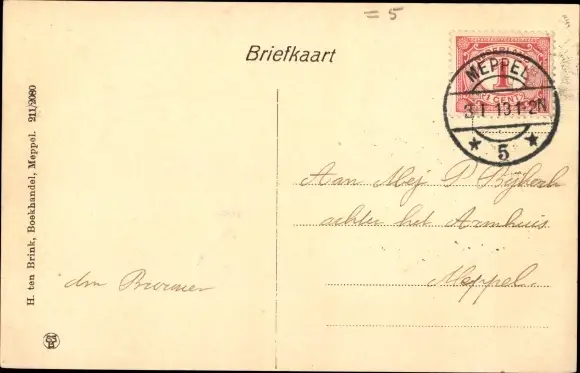 = 5
Briefkaart
NEDERLAND
1
CENT
MEPPEL
3.1.13.1-2N
* 5 *
Aan Mej P
achter het Armhuis
Meppel.
H. ten Brink, Boekhandel, Meppel. 211/2080